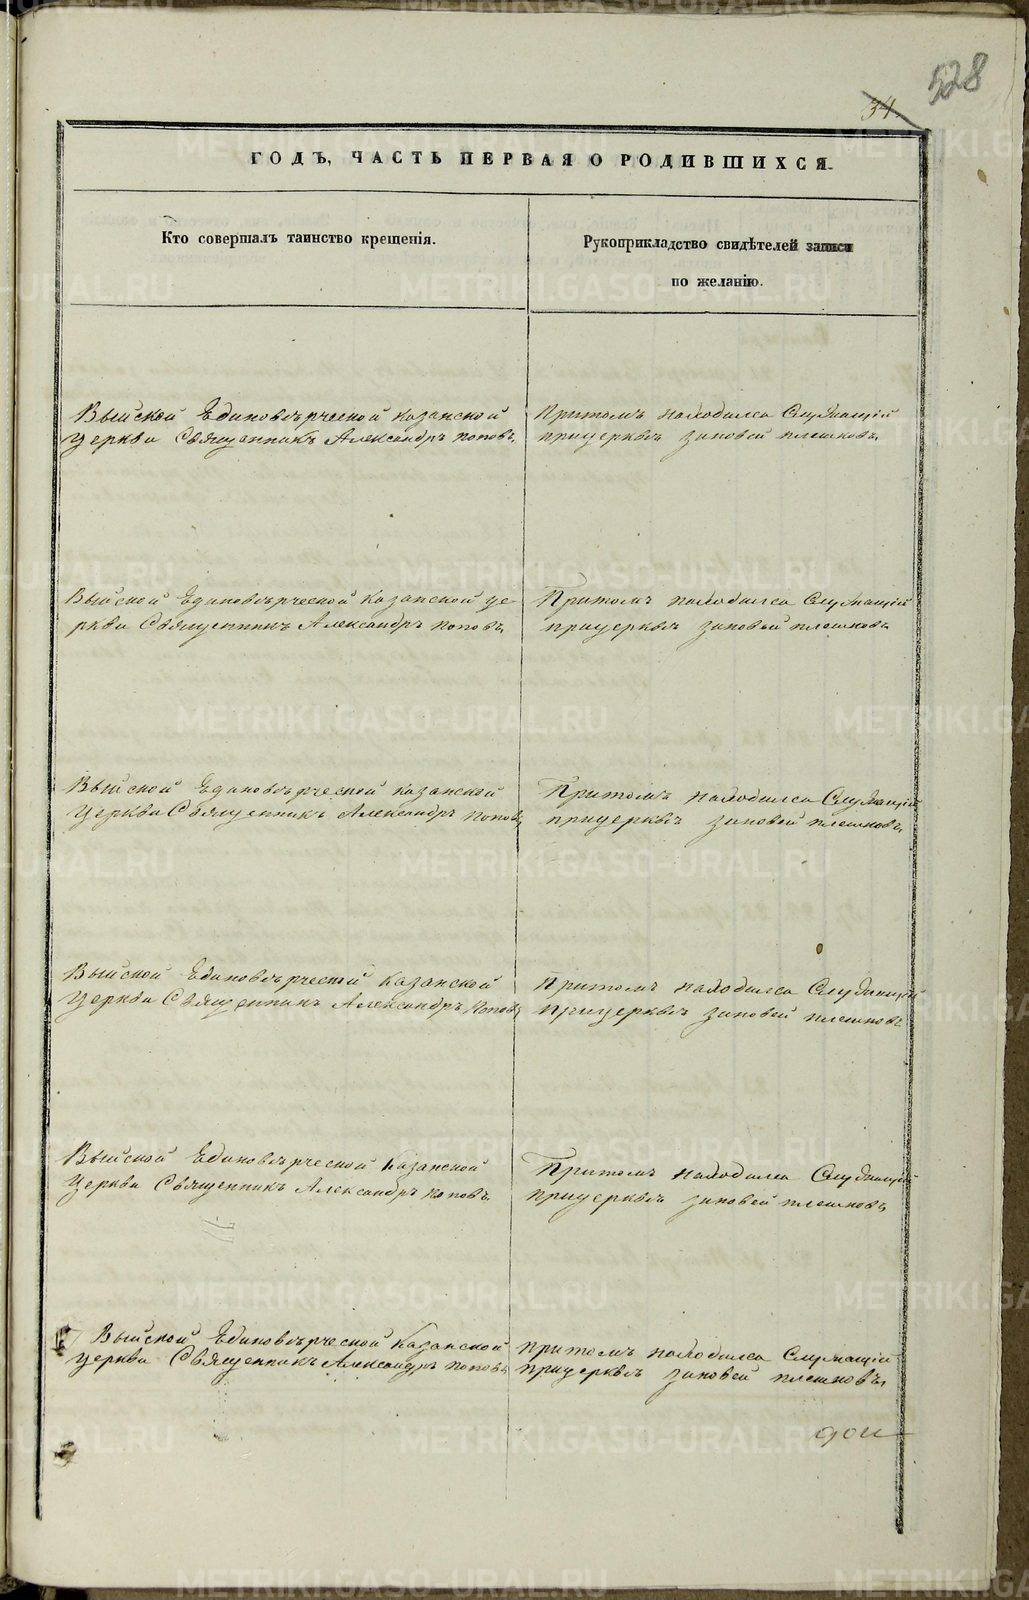 528
34.
ГОДЪ, ЧАСТЬ ПЕРВАЯ О РОДИВШИХСЯ.
Кто совершалъ таинство крещенія.
Рукоприкладство свидѣтелей записи
по желанію.
Выйской Единовѣрческой Казанской
церкви Священникъ Александръ Поповъ
Притомъ находился Служащій
прицерквѣ Зиновей Плешковъ
Выйской Единовѣрческой Казанской це-
ркви Священникъ Александръ Поповъ
Притомъ находился Служащій
прицерквѣ Зиновей Плешковъ
Выйской Единовѣрческой Казанской
Церкви Священникъ Александръ Поповъ
Притомъ находился Служащій
прицерквѣ Зиновей Плешковъ
Выйской Единовѣрческой Казанской
Церкви Священникъ Александръ Поповъ
Притомъ находился Служащій
Прицерквѣ Зиновей Плешковъ
Выйской Единовѣрческой Казанской
Церкви Священникъ Александръ Поповъ
Притомъ находился Служащій
прицерквѣ Зиновей Плешковъ
Выйской Единовѣрческой Казанской
церкви Священникъ Александръ Поповъ
Притомъ находился Служащій
прицерквѣ Зиновей Плешковъ
METRIKI.GASO-URAL.RU